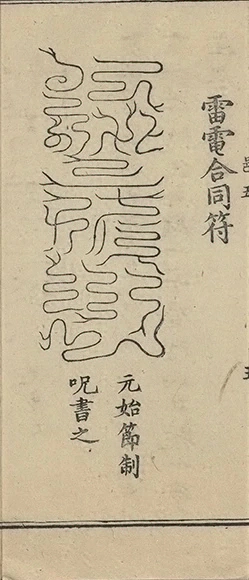 雷電合同符
元始節制
呪書之